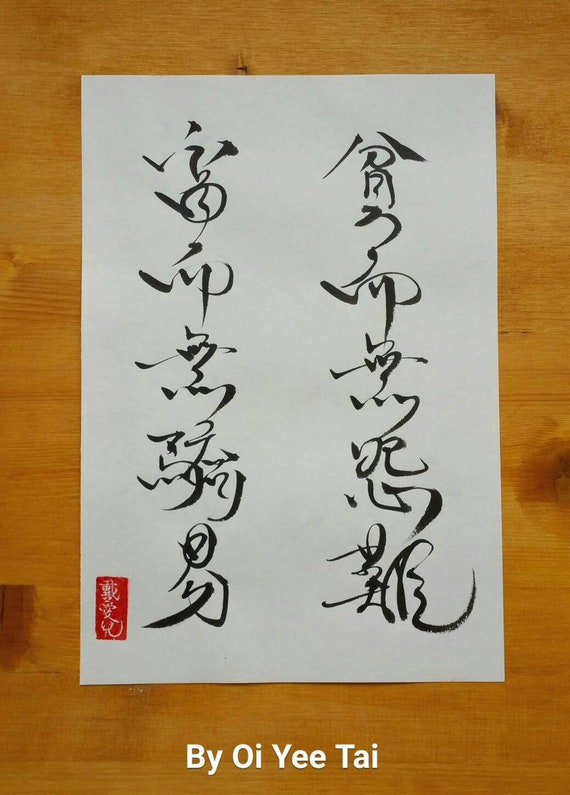 貧而無怨難
富而無驕易
戴愛兒
By Oi Yee Tai